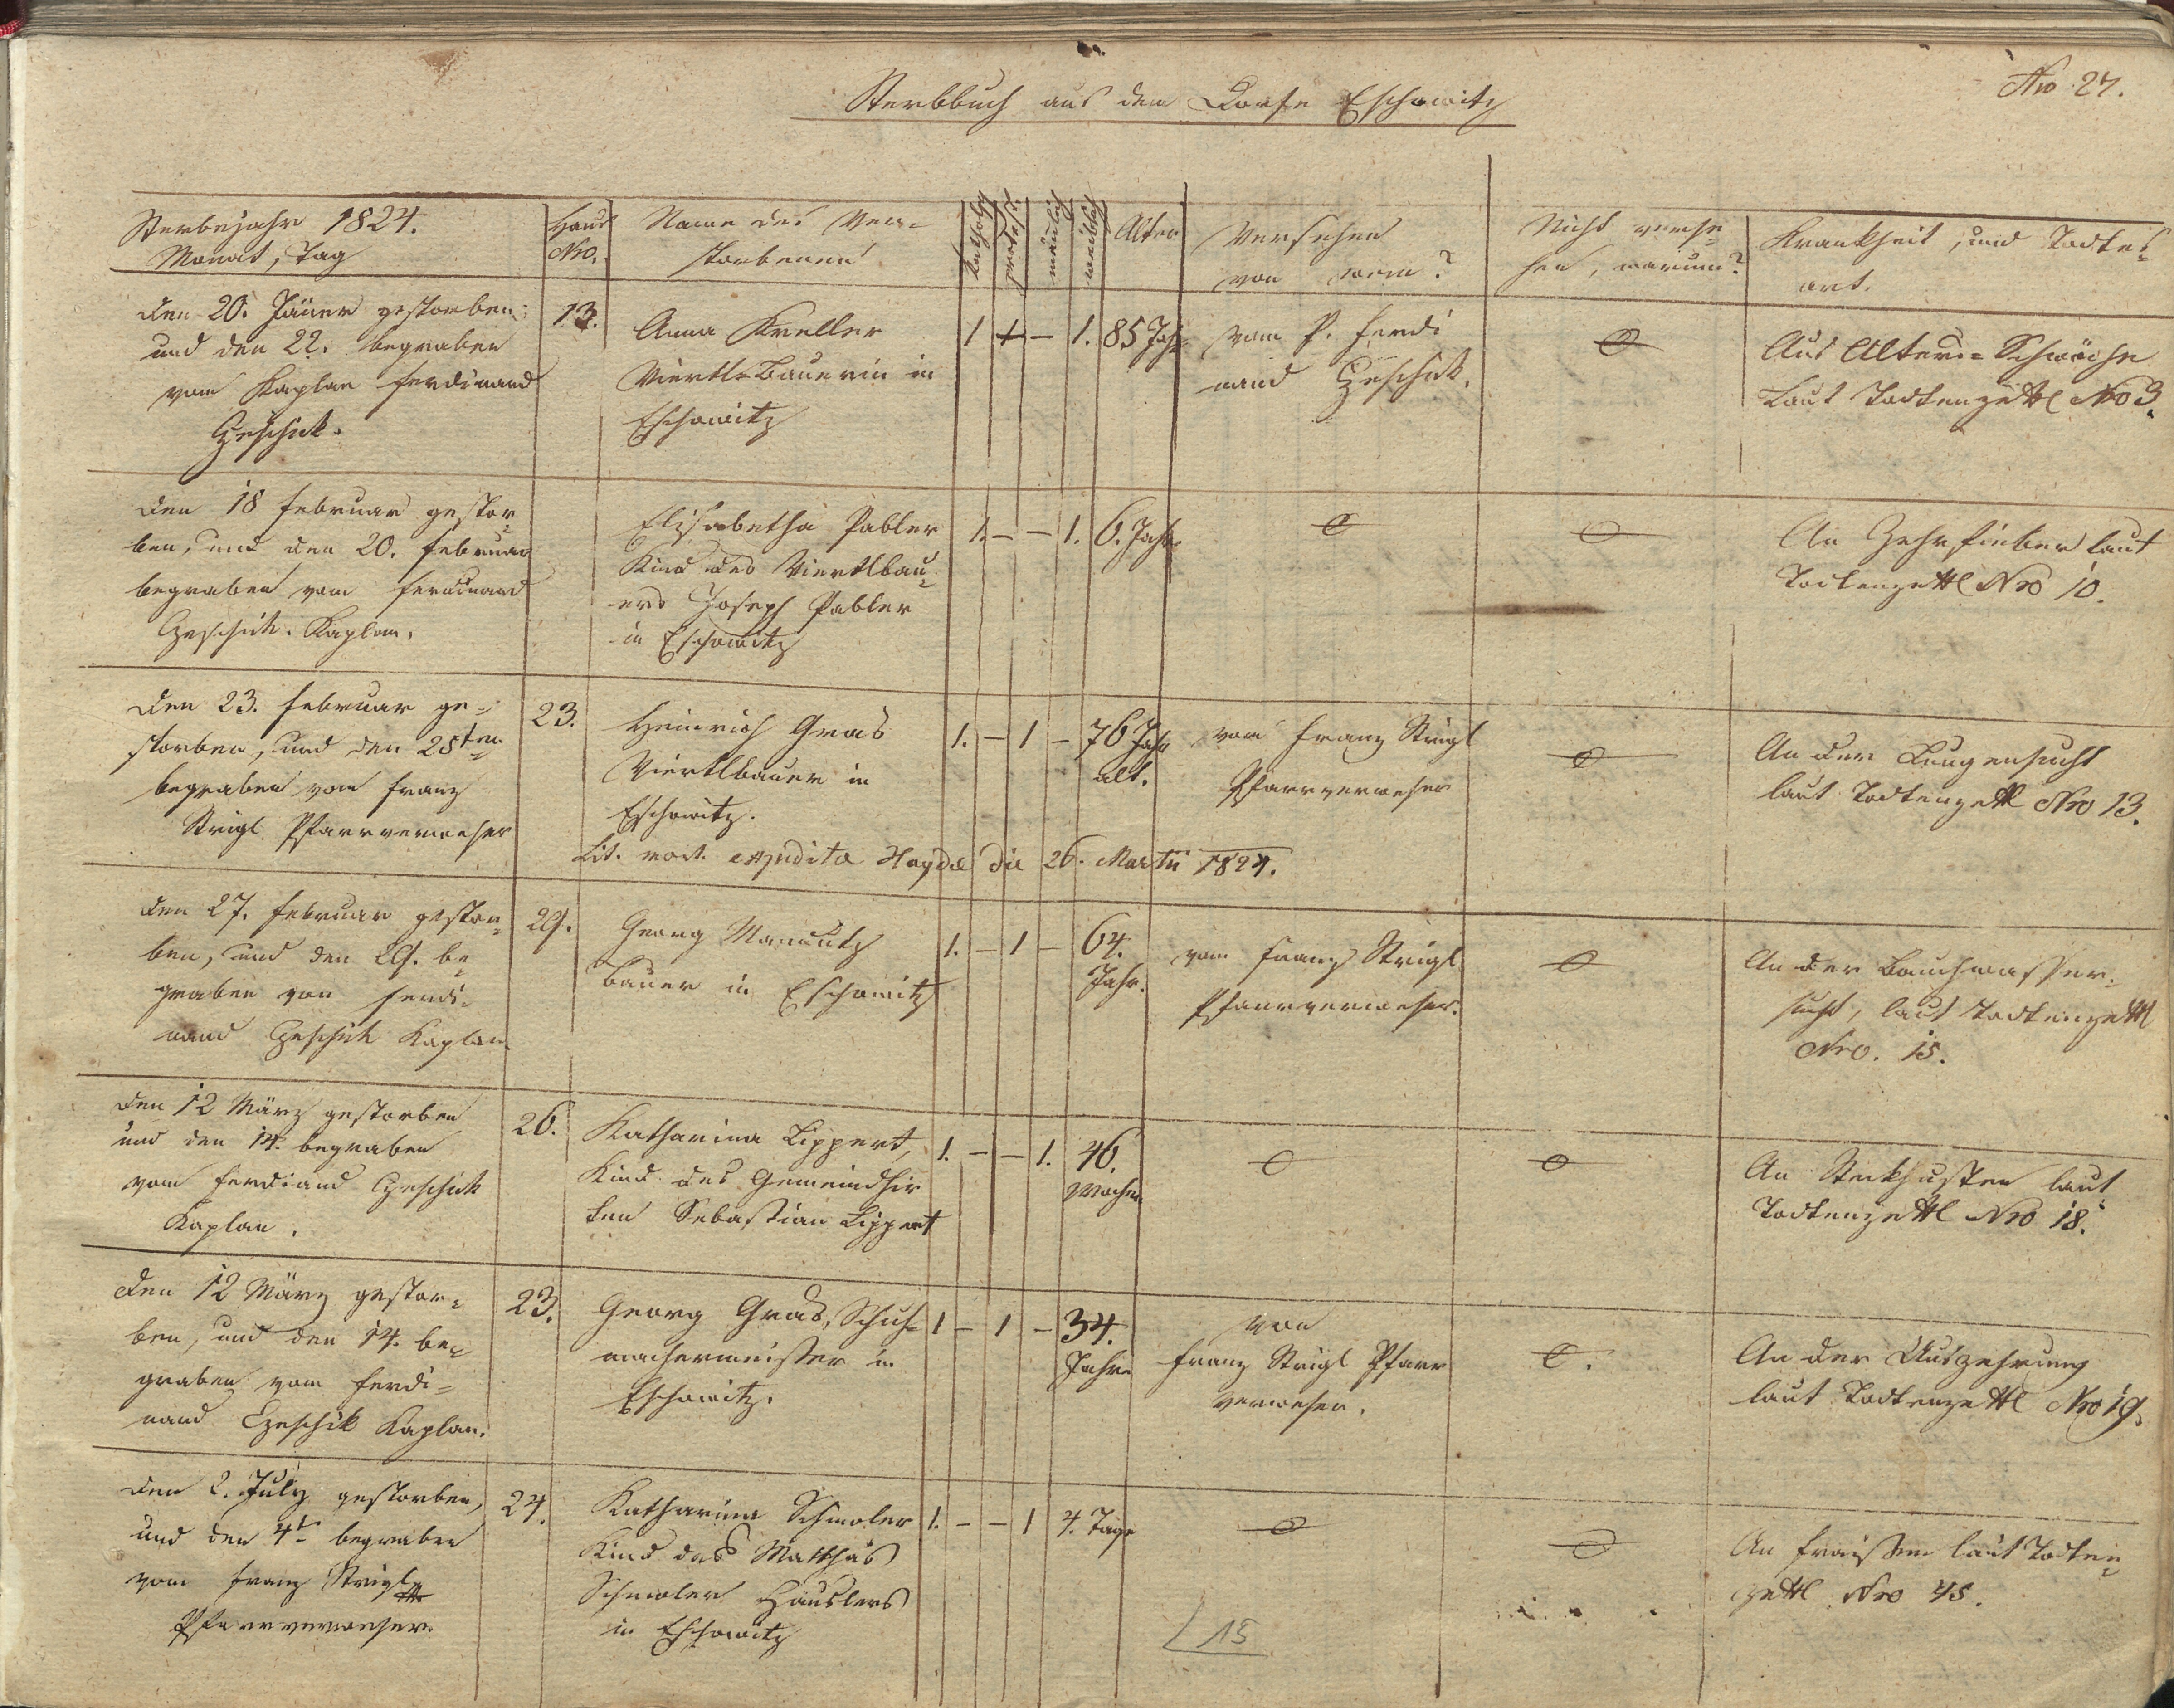 Nro 27.
Sterbbuch aus dem Dorfe Eschowitz
Sterbejahr 1824.
Monat, Tag
Haus
Nro.
Name des Ver-
storbenen
katholisch
protest.
männlich
weiblich
Alter
Versehen
von wem?
Nicht verse-
hen, warum?
Krankheit, und Todtes-
art.
den 20. Jäner gestorben
und den 22. begraben
vom Kaplan Ferdinand
Czeschik.
13.
Anna Kreller
Viertl-Bauerin in
Eschowitz
1 + – 1. 85 Jahr
vom P. Ferdi
nand Czeschik.
Aus Alters-Schwäche
Laut Todtenzettl Nro 3.
den 18 Februar gestor-
ben, und den 20. Februar
begraben vom Ferdinand
Czeschik. Kaplan.
Elisabetha Pabler
Kind des Viertlbau-
ers Joseph Pabler
in Eschowitz
1. – – 1. 6. Jahr
An Zehrfieber laut
Todtenzettl Nro 10.
den 23. Februar ge-
storben, und den 25ten
begraben vom Franz
Strigl Pfarrverweser
23.
Heinrich Gras
Viertlbauer in
Eschowitz.
1. – 1 – 76 Jahr
alt.
vom Franz Strigl
Pfarrverweser
An der Lungensucht
laut Todtenzettl Nro 13.
Lit. mort. expedita Hayde die 26. Martii 1824.
den 27. Februar gestor-
ben, und den 29. be-
graben von Ferdi-
nand Czeschik Kaplan
29.
Georg
Bauer in Eschowitz
1. – 1 – 64.
Jahr.
vom Franz Strigl
Pfarrverweser.
An der Bauchwasser-
sucht, laut Todtenzettl
Nro. 15.
den 12 März gestorben
und den 14. begraben
vom Ferdiand Czeschik
Kaplan.
26.
Katharina Lippert,
Kind des Gemeindhir
ten Sebastian Lippert
1. – – 1. 46.
Wochen
An Stekhusten laut
Todtenzettl Nro 18.
den 12 März gestor-
ben, und den 14. be-
graben vom Ferdi-
nand Czeschik Kaplan.
23.
Georg Gras, Schuh-
machermeister in
Eschowitz.
1 – 1 – 34.
Jahre
von
Franz Strigl Pfarr
verweser.
An der Auszehrung
laut Todtenzettl Nro 19.
den 2. July gestorben,
und den 4t begraben
vom Franz Strigl
Pfarrverweser.
24.
Katharina Schmoler
Kind des Matthäs
Schmoler Häuslers
in Eschowitz
1. – – 1 4. Tage
An Fraisen laut Todten-
zettl Nro 45.
15